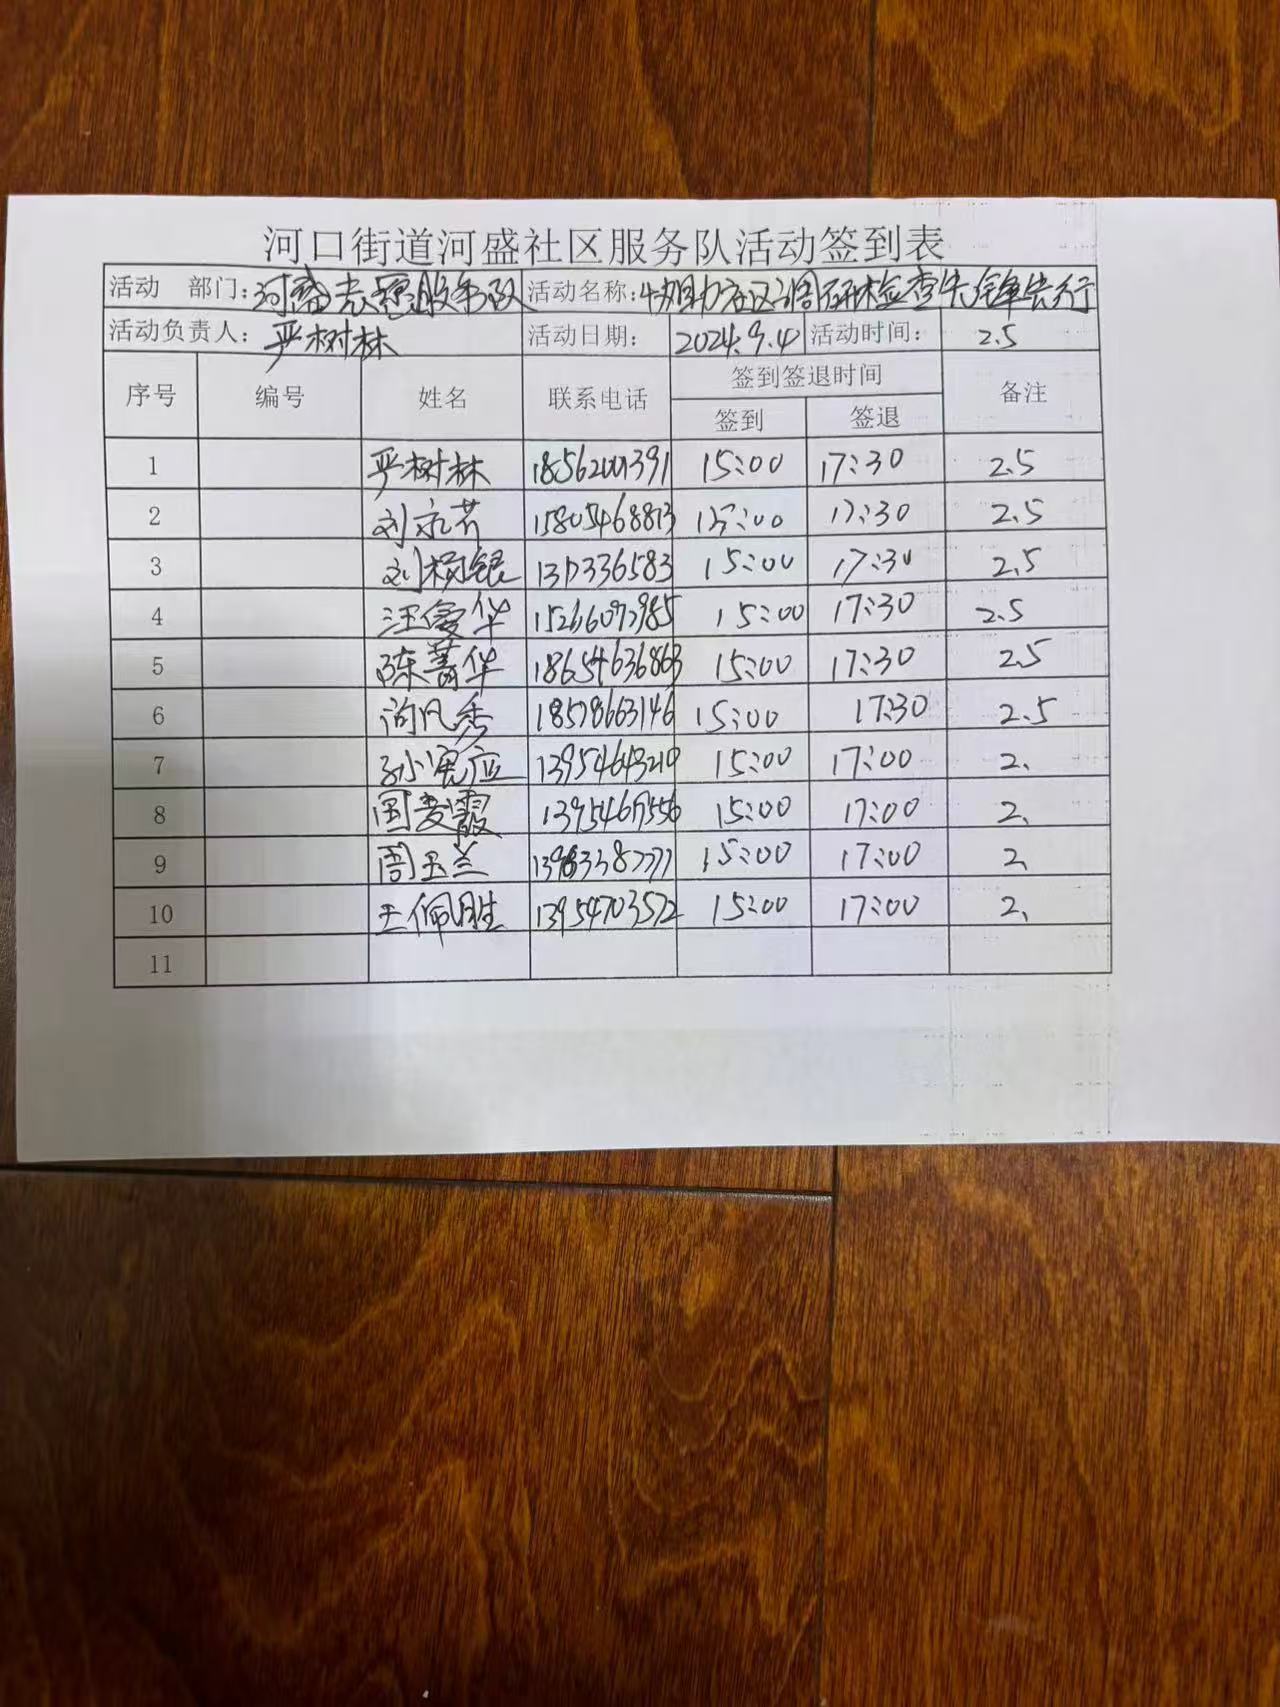 河口街道河盛社区服务队活动签到表
活动 部门:河盛志愿服务队 活动名称:协助社区调研检查
活动负责人: 严树林 活动日期: 2024.9.4 活动时间: 2.5
序号 编号 姓名 联系电话 签到签退时间 备注
签到 签退
1 严树林 18562001391 15:00 17:30 2.5
2 刘永芳 15805468813 15:00 17:30 2.5
3 刘杨银 15:00 17:30 2.5
4 汪爱华 15266097985 15:00 17:30 2.5
5 陈菁华 18654636863 15:00 17:30 2.5
6 凤秀 15:00 17:30 2.5
7 孙 应 13954643210 15:00 17:00 2.
8 周爱霞 15:00 17:00 2.
9 周玉兰 15:00 17:00 2.
10 王佩胜 13954703572 15:00 17:00 2.
11